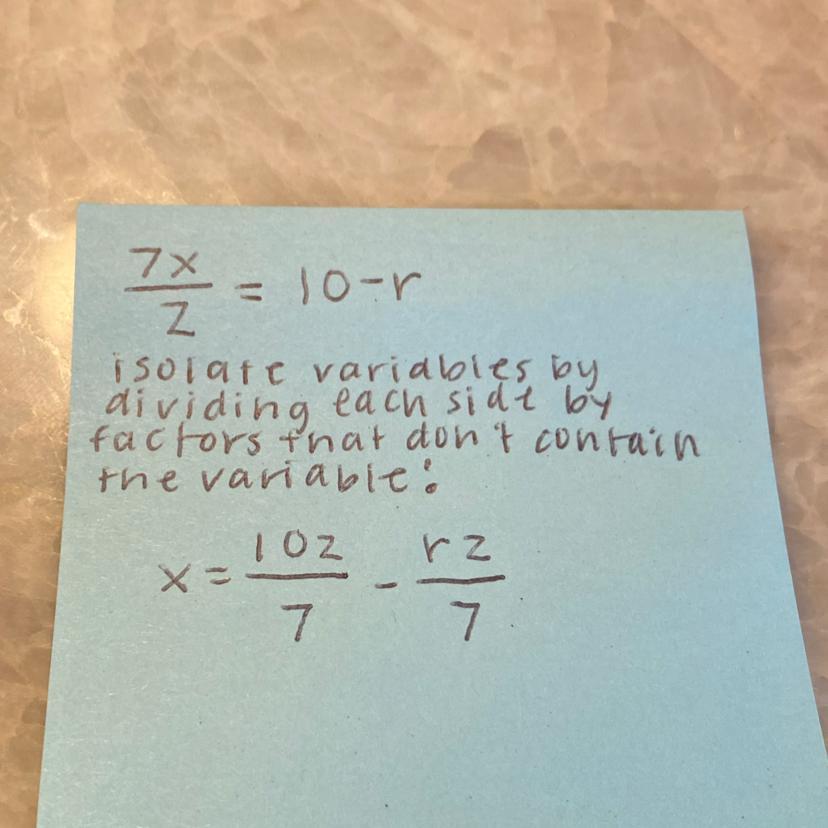 7x/z = 10-r
isolate variables by
dividing each side by
factors that don't contain
the variable:
x = 10z/7 - rz/7